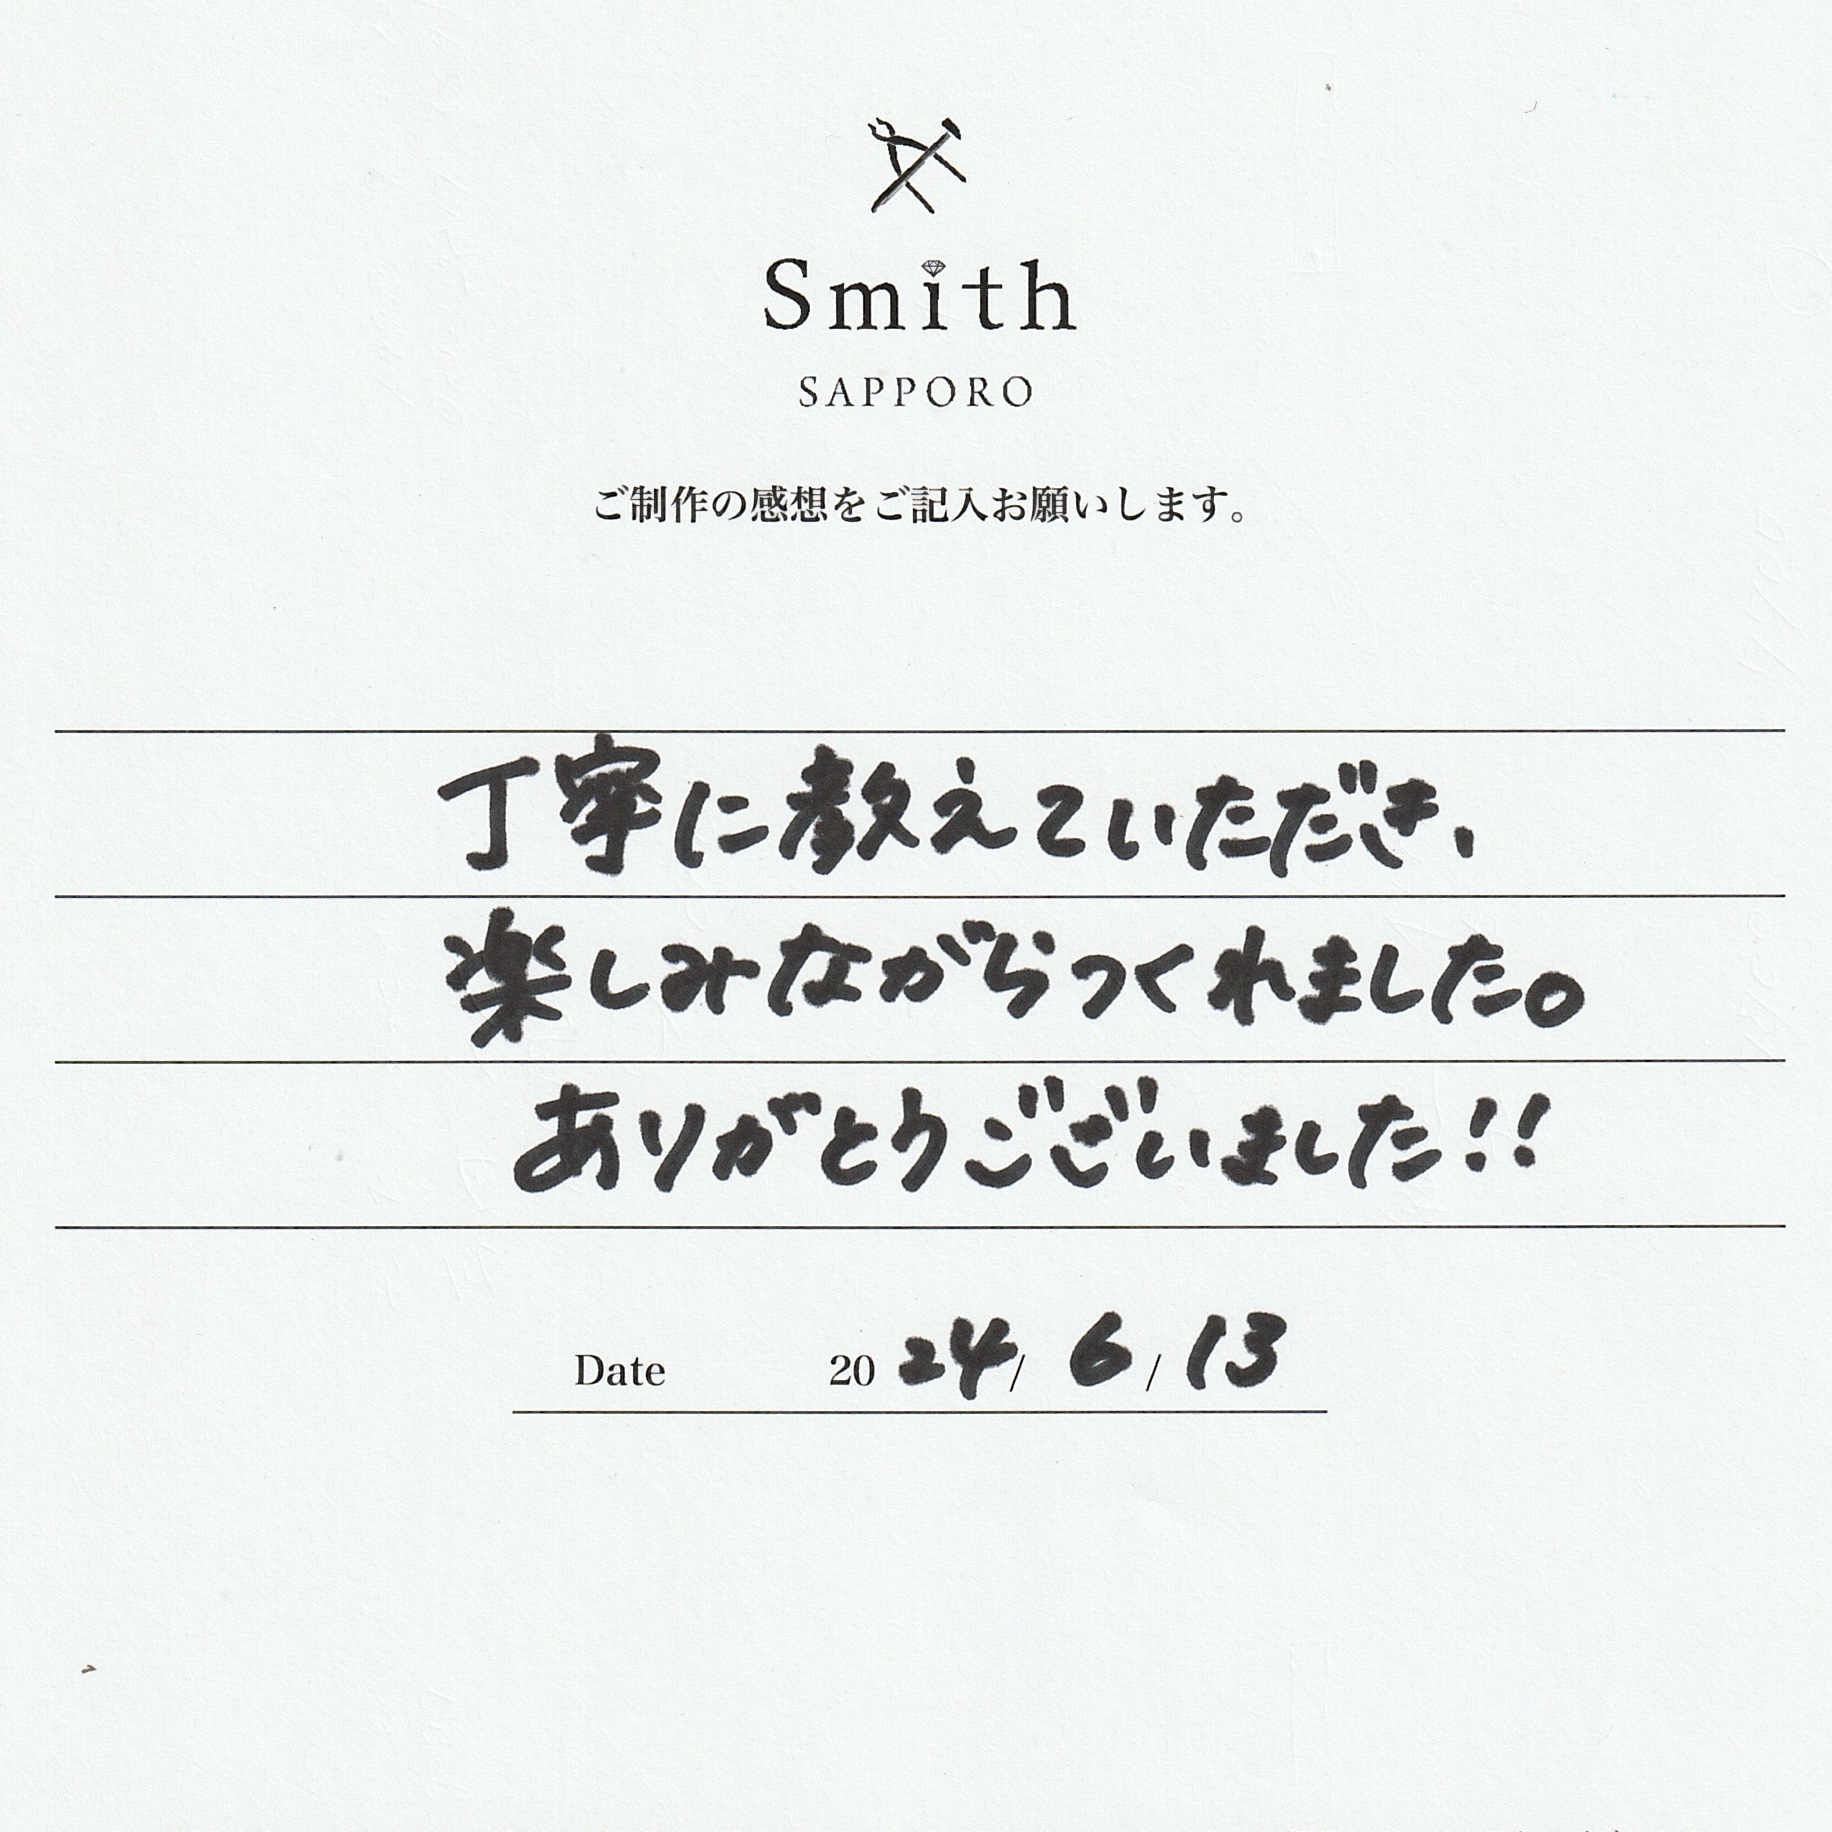 Smith
SAPPORO
ご制作の感想をご記入お願いします。
丁寧に教えていただき、
楽しみながらつくれました。
ありがとうございました!!
Date 2024/6/13